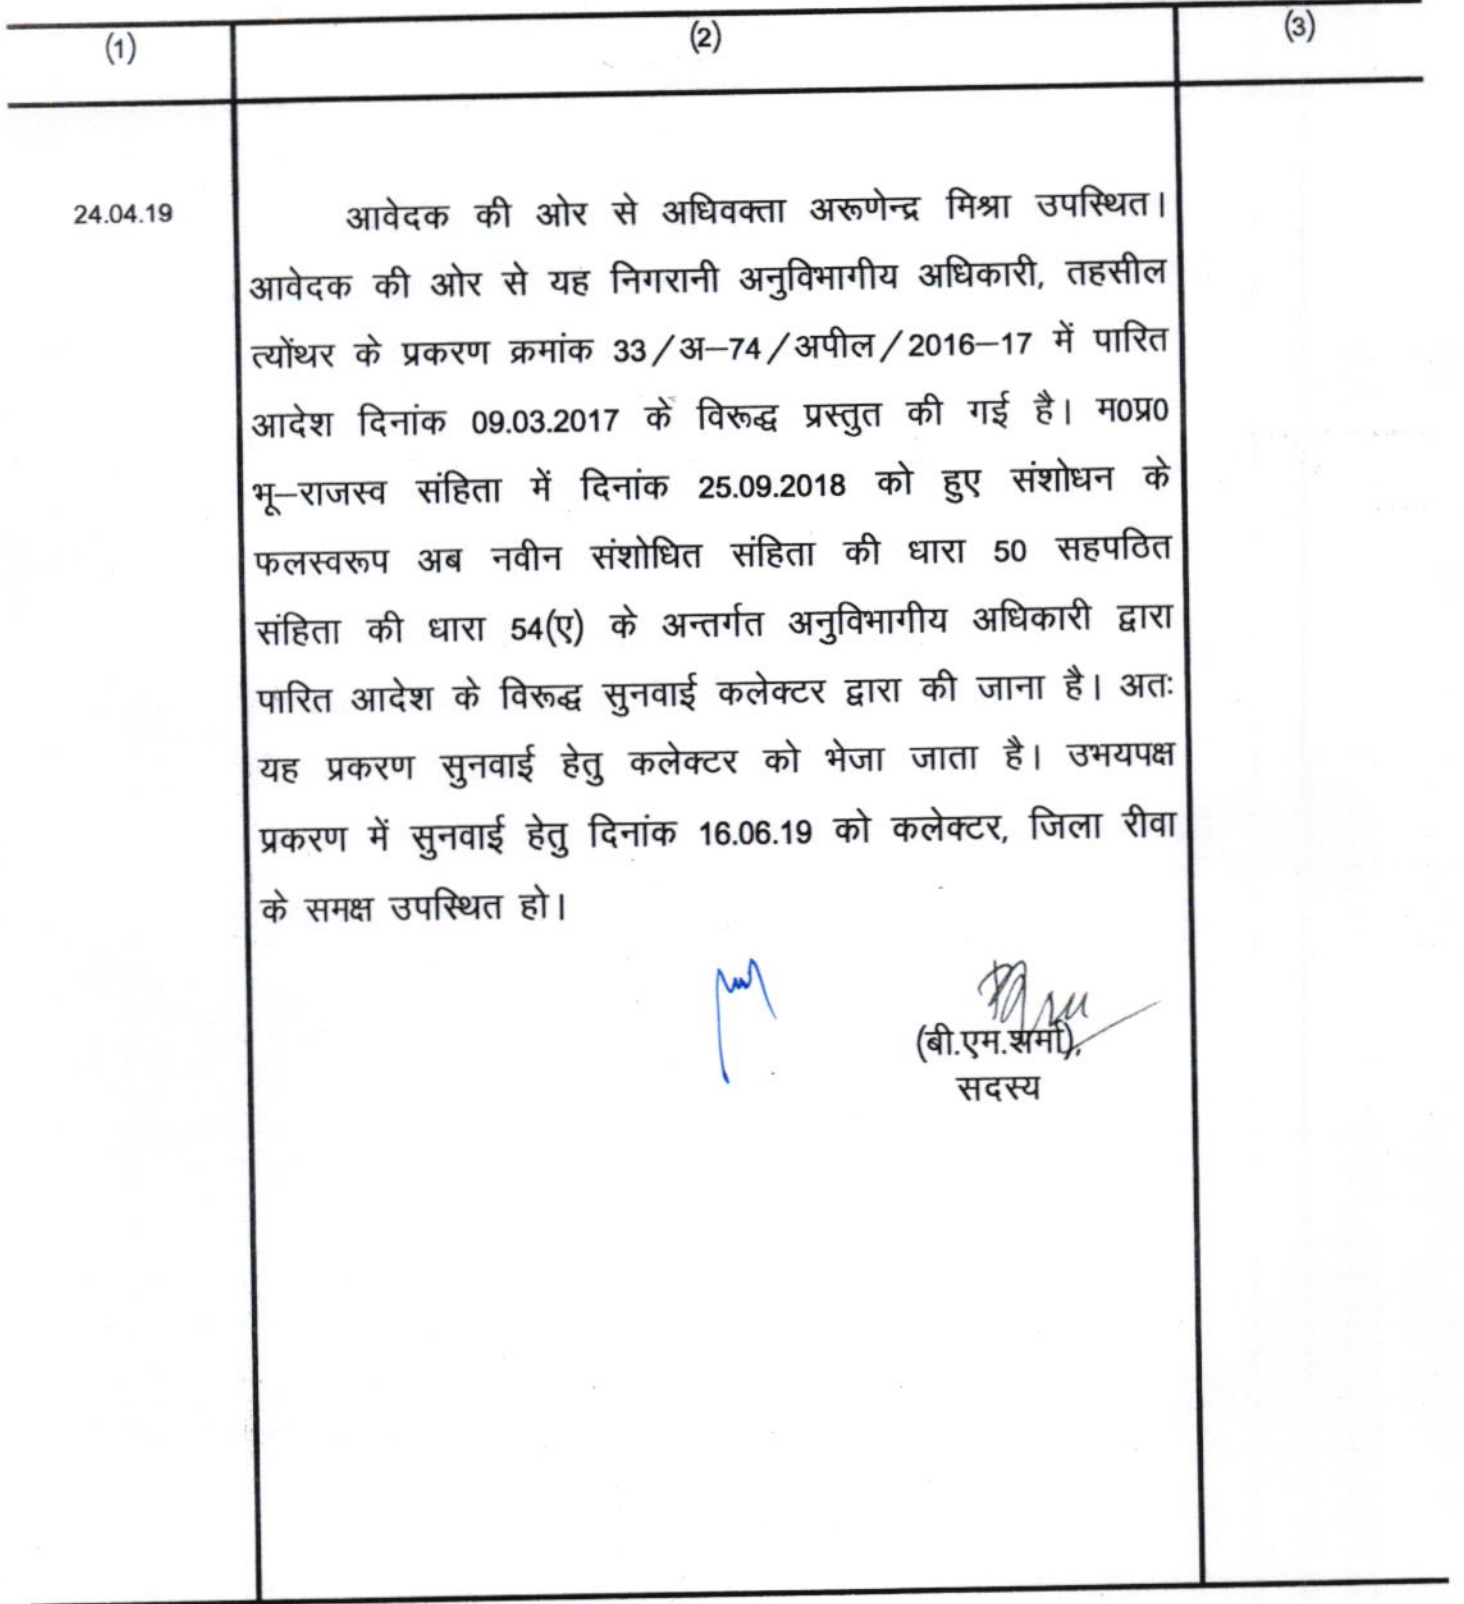 (1) (2) (3)
24.04.19 आवेदक की ओर से अधिवक्ता अरूणेन्द्र मिश्रा उपस्थित।
आवेदक की ओर से यह निगरानी अनुविभागीय अधिकारी, तहसील
त्योंथर के प्रकरण क्रमांक 33/अ–74/अपील/2016–17 में पारित
आदेश दिनांक 09.03.2017 के विरूद्ध प्रस्तुत की गई है। म0प्र0
भू–राजस्व संहिता में दिनांक 25.09.2018 को हुए संशोधन के
फलस्वरूप अब नवीन संशोधित संहिता की धारा 50 सहपठित
संहिता की धारा 54(ए) के अन्तर्गत अनुविभागीय अधिकारी द्वारा
पारित आदेश के विरूद्ध सुनवाई कलेक्टर द्वारा की जाना है। अतः
यह प्रकरण सुनवाई हेतु कलेक्टर को भेजा जाता है। उभयपक्ष
प्रकरण में सुनवाई हेतु दिनांक 16.06.19 को कलेक्टर, जिला रीवा
के समक्ष उपस्थित हो।
(बी.एम.शर्मा),
सदस्य